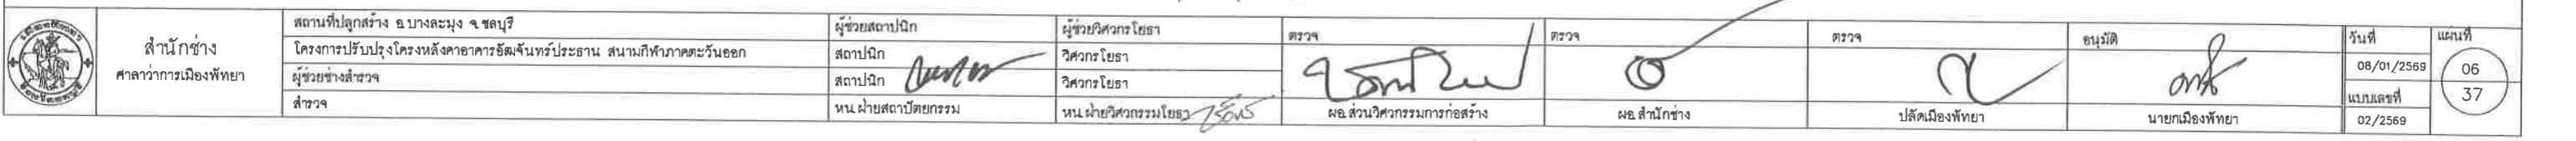 สำนักช่าง
ศาลาว่าการเมืองพัทยา
สถานที่ปลูกสร้าง อ.บางละมุง จ.ชลบุรี
โครงการปรับปรุงโครงหลังคาอาคารอัฒจันทร์ประธาน สนามกีฬาภาคตะวันออก
ผู้ช่วยช่างสำรวจ
สำรวจ
ผู้ช่วยสถาปนิก
สถาปนิก
สถาปนิก
หน.ฝ่ายสถาปัตยกรรม
ผู้ช่วยวิศวกรโยธา
วิศวกรโยธา
วิศวกรโยธา
หน.ฝ่ายวิศวกรรมโยธา
ตรวจ
ผอ.ส่วนวิศวกรรมการก่อสร้าง
ตรวจ
ผอ.สำนักช่าง
ตรวจ
ปลัดเมืองพัทยา
อนุมัติ
นายกเมืองพัทยา
วันที่
08/01/2569
แบบเลขที่
02/2569
แผ่นที่
06
37